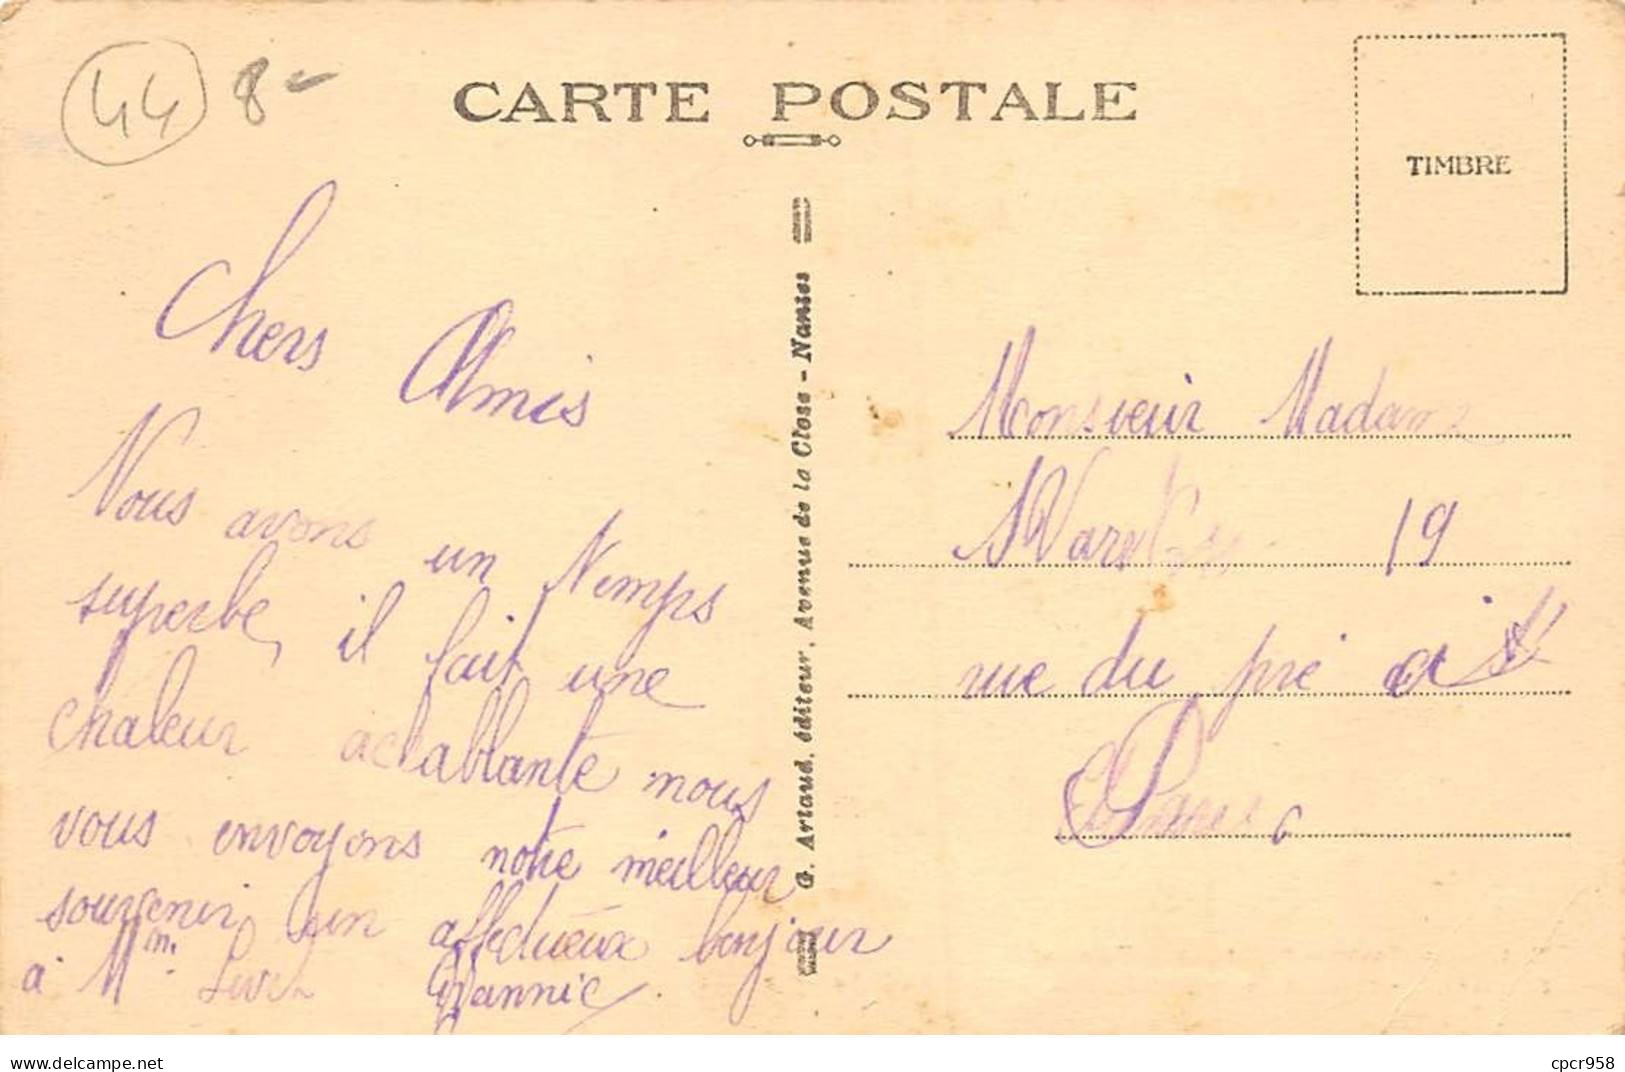 44 8-
CARTE POSTALE
TIMBRE
Chers Amis
Nous avons un Temps
superbe, il fait une
chaleur accablante nous
vous envoyons notre meilleur
souvenir un affectueux bonjour
à Mm.
G. Artaud, éditeur, Avenue de la Close - Nantes
Monsieur Madame
19
rue du pré
delcampe.net
cpcr958